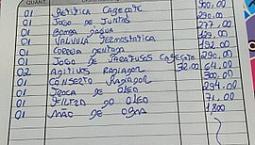 QUANT.
01 Retifica Cabeçote 900,00
01 Jogo de Juntas 290,00
01 Bomba Dagua 277,00
01 Valvula Termostatica 129,00
01 Correia dentada 192,00
01 Jogo de Parafusos Cabeçote 290,00
02 Aditivos Radiador 32,00 64,00
01 Conserto Radiador 300,00
01 Troca de óleo 294,00
01 Filtro do óleo 71,00
01 Mão de Obra 1.800